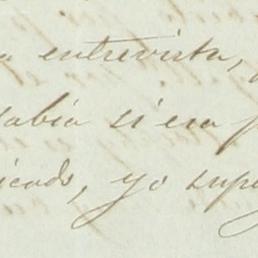 a entrevista,
sabia si era
icado, yo supe